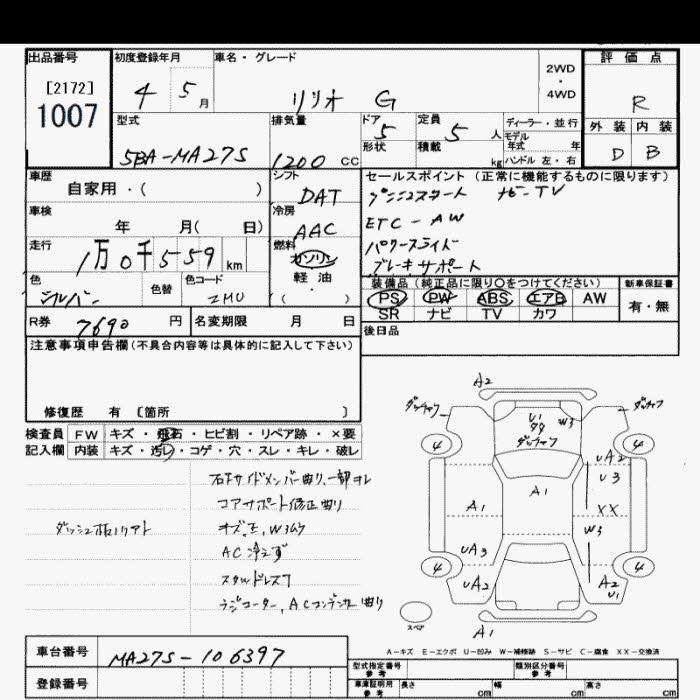 出品番号
[2172]
1007
初度登録年月
4 5月
車名・グレード
リリオ G
2WD
・
4WD
評価点
R
外装 内装
D B
型式
5BA-MA27S
排気量
1200 CC
ドア 5
形状
定員 5 人
積載 kg
ディーラー・並行
モデル
年式 年
ハンドル 左・右
車歴
自家用・( )
車検
年 月( 日)
走行
1万0千559 km
色
シルバー
色替
色コード
ZMU
シフト
DAT
冷房
AAC
燃料
ガソリン
軽油
( ・ )
セールスポイント (正常に機能するものに限ります)
プッシュスタート ナビ-TV
ETC - AW
パワースライド
ブレーキサポート
装備品 (純正品に限り○をつけてください)
PS PW ABS エアB AW
SR ナビ TV カワ
新車保証書
有・無
後日品
R券 7690 円
名変期限 月 日
注意事項申告欄(不具合内容等は具体的に記入して下さい)
修復歴 有 〔箇所 〕
検査員 FW キズ・飛石・ヒビ割・リペア跡・×要
記入欄 内装 キズ・汚レ・コゲ・穴・スレ・キレ・破レ
右サイドメンバー曲り、一部ヨレ
コアサポート修正曲り
ダッシュ板リアト
キズ、エ、W3ムラ
AC冷えず
スタッドレス7
ラジコーター、ACコンデンサー曲り
A2
ダッチャク
ダッチャク
U1
W3
ダッチャク
4
4
A1
A1
UA2
U3
XX
W3
UA3
4
4
UA2
A2
U1
スペア
A1
A-キズ E-エクボ U-凹み W-補修跡 S-サビ C-腐食 XX-交換済
車台番号 MA27S-106397
登録番号
型式指定番号
参考
類別区分番号
参考
車庫証明用
参考
長さ cm 幅 cm 高さ cm